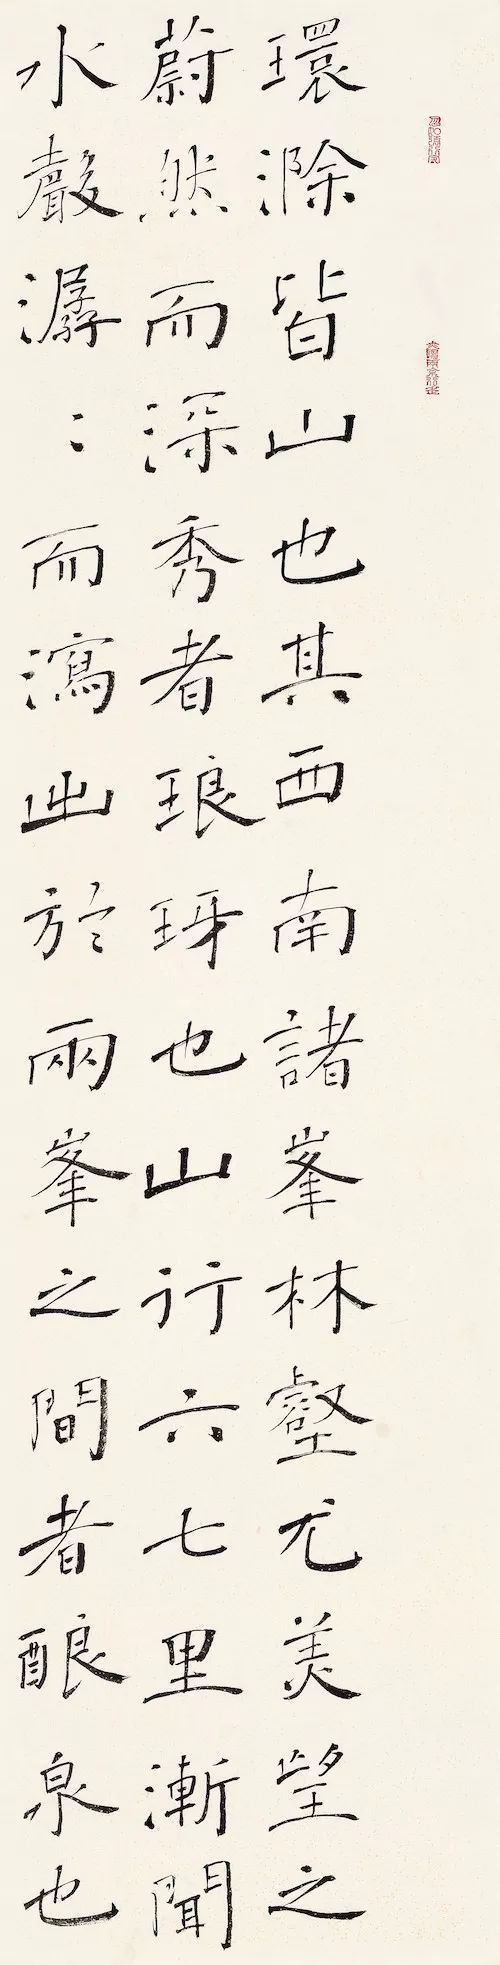 環滁皆山也其西南諸峯林壑尤美望之
蔚然而深秀者琅玡也山行六七里漸聞
水聲潺〻而瀉出於兩峯之間者酿泉也